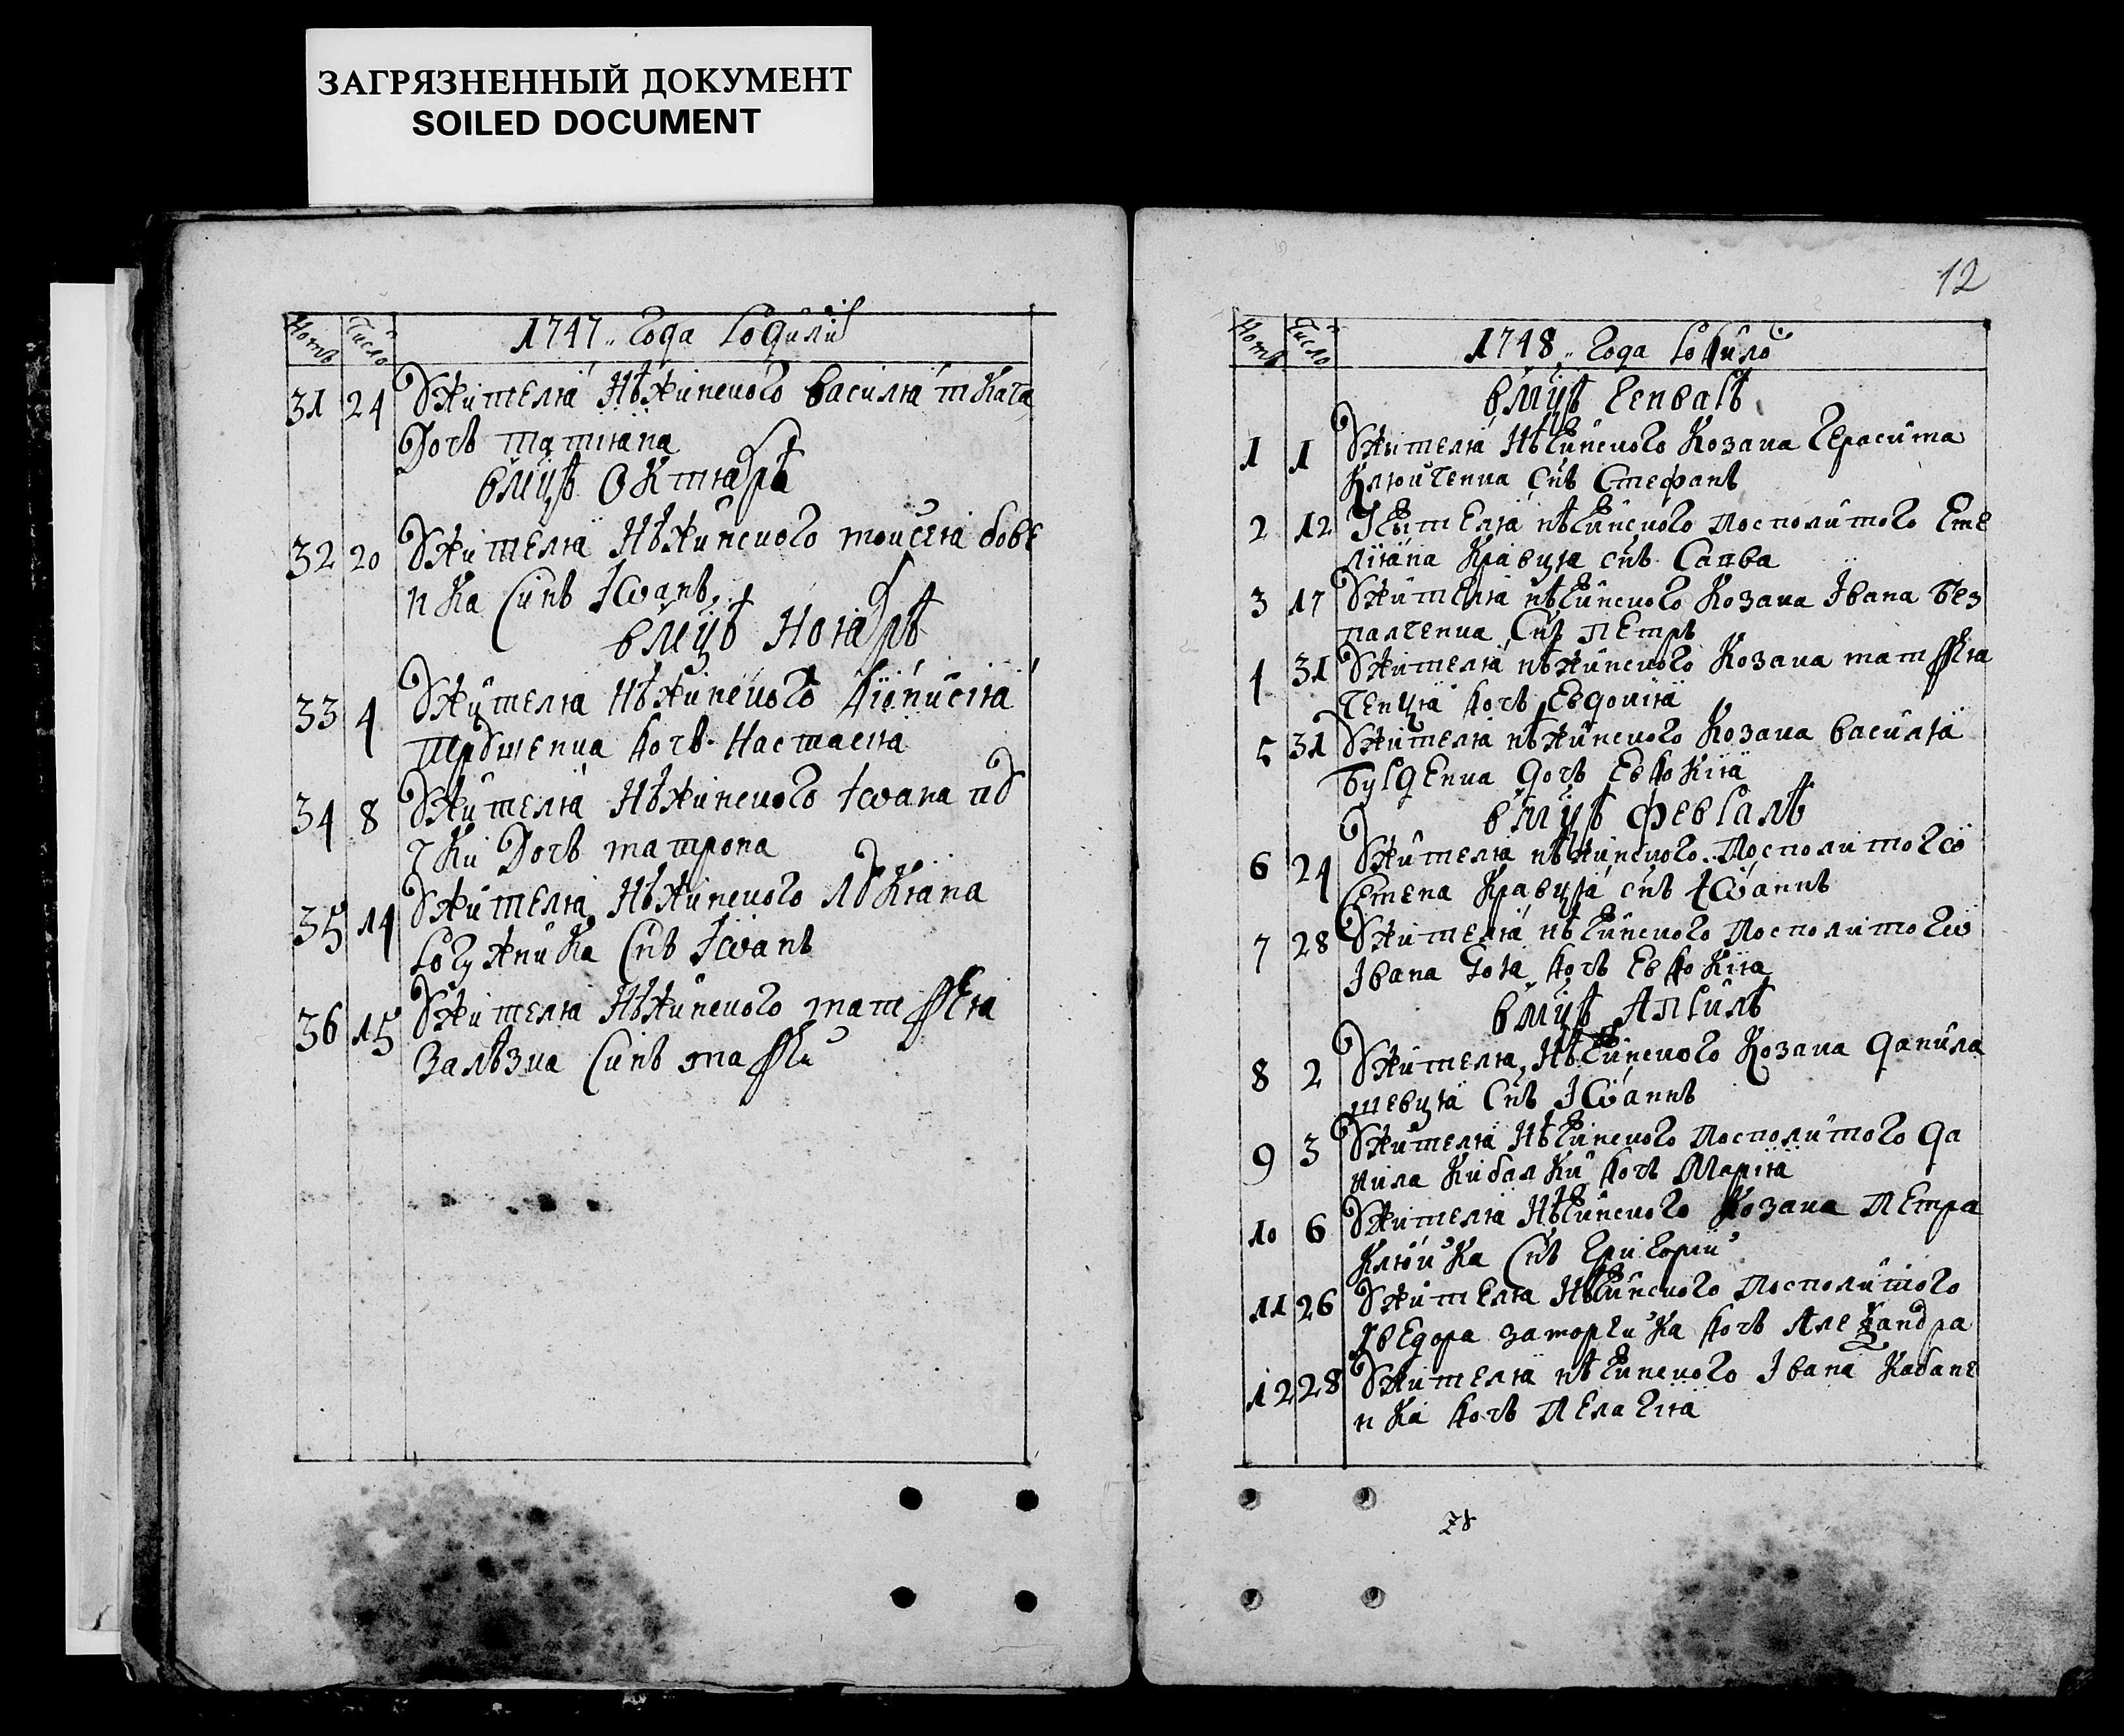 ЗАГРЯЗНЕННЫЙ ДОКУМЕНТ
SOILED DOCUMENT
12
Число
1747 года родил
31 24 Ꙋ жителя Нѣжинского василя ткача
Дочь татияна
в мцѣ Октябрѣ
32 20 Ꙋ жителя Нѣжинского моисея бове
нка Синъ Іѡанъ
в мцѣ Ноябрѣ
33 4 Ꙋ жителя Нѣжинского Діонисия
дочь Настасия
34 8 Ꙋ жителя Нѣжинского Іѡана пꙋ
чки Дочь матрона
35 14 Ꙋ жителя Нѣжинского лꙋкяна
рогужника Снъ Іѡанъ
36 15 Ꙋ жителя Нѣжинского матфея
Залѣзка Синъ
Число
1748 года родило
в мцѣ Генварѣ
1 1 Ꙋ жителя Нѣжинского Козака Герасима
Клюйченка Снъ Стефанъ
2 12 Ꙋ жителя нѣжинского Посполитого Еме
лияна Кравця снъ Савва
3 17 Ꙋ жителя нѣжинского Козака Івана Без
палченка Снъ Петръ
4 31 Ꙋ жителя нѣжинского Козака матфея
дочь Евдокия
5 31 Ꙋ жителя нѣжинского Козака василия
Бурденка дочь Евдокия
в мцѣ Февралѣ
6 24 Ꙋ жителя нѣжинского Посполитогѡ
Семена Кравця снъ Іѡаннъ
7 28 Ꙋ жителя нѣжинского Посполитогѡ
Івана дочь Евдокия
в мцѣ Априлѣ
8 2 Ꙋ жителя Нѣжинского Козака данила
шевця Снъ Іѡаннъ
9 3 Ꙋ жителя Нѣжинского Посполитого да
нила Кибалки дочь Мария
10 6 Ꙋ жителя Нѣжинского Козака Петра
Клюйка Снъ Григорий
11 26 Ꙋ жителя Нѣжинского Посполитого
дочь Алеѯандра
12 28 Ꙋ жителя нѣжинского Івана Кабане
нка дочь Пелагия
78